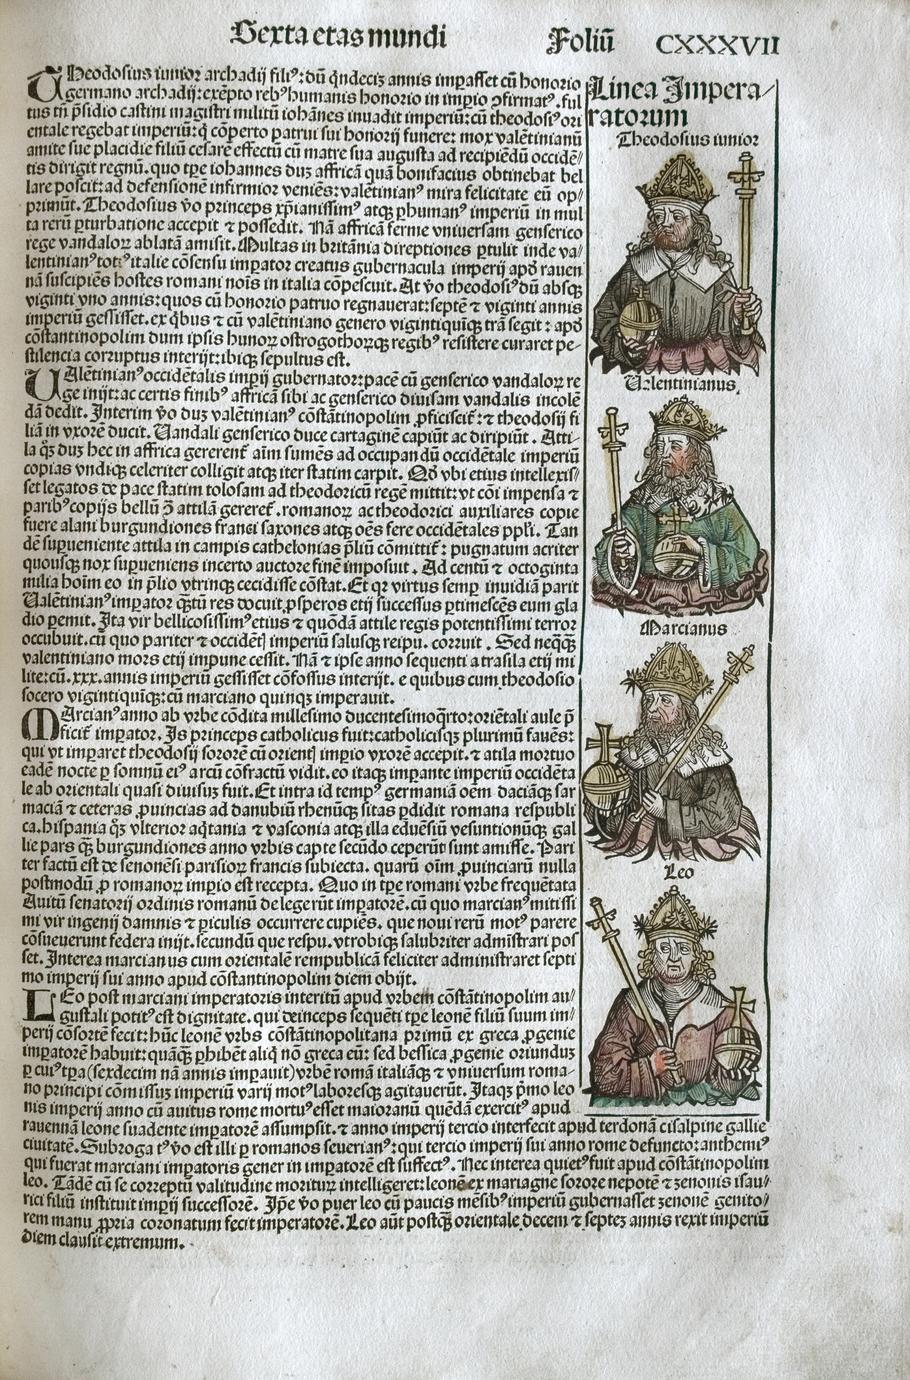 Sexta etas mundi
Foliū CXXXVII
Theodosius iunior archadij filiꝰ: dū qndecis annis imperasset cū honorio
germano archadij: exēpto rebꝰ humanis honorio in imperio ↄfirmatꝰ. ful
tus tn̄ p̄sidio castini magistri militū iohānes inuadit imperiū: cū theodosiꝰ ori
entale regebat imperiū: q̇ cōperto patrui sui honorij funere: mox valētinianū
amite sue placidie filiū cesarē effectū cū matre sua augusta ad recipiēdū occidē
tis dirigit regnū. quo tp̄e iohannes duꝫ affricā quā bonifacius obtinebat bel
lare poscit: ad defensionē infirmior veniēs: valētinianꝰ mira felicitate eū op
primūt. Theodosius v̄o princeps xp̄ianissimꝰ atqꝫ ꝑhumanꝰ imperiū in mul
ta rerū ꝑturbatione accepit ⁊ possedit. Nā affricā ferme vniuersam genserico
rege vandaloꝝ ablatā amisit. Multas in britānia direptiones ꝑtulit inde va
lentinianꝰ totꝰ italie cōsensu imperator creatus gubernacula imperij apd̄ rauen
nā suscipiēs hostes romani nōis in italia cōpescuit. At v̄o theodosiꝰ dū absqꝫ
viginti vno annis: quos cū honorio patruo regnauerat: septē ⁊ viginti annis
imperiū gessisset. ex q̇bus ⁊ cū valētiniano genero vigintiquinqꝫ trāsegit: apd̄
cōstantinopolim dum ipsis hunoꝝ ostrogothorqꝫ regibꝰ resistere curaret pe
stilencia corruptus interijt: ibiqꝫ sepultus est.
VAlētinianꝰ occidētalis imperij gubernator: pacē cū genserico vandaloꝝ re
ge inijt: ac certis finibꝰ affricā sibi ac genserico diuisam vandalis incolē
dā dedit. Interim v̄o duꝫ valētinianꝰ cōstātinopolim ꝓficiscit̄: ⁊ theodosij fi
liā in vxorē ducit. Uandali genserico duce cartaginē capiūt ac diripiūt. Atti
la q̇ꝫ duꝫ hec in affrica gererent̄ aīm sumēs ad occupandū occidētale imperiū
copias vndiqꝫ celeriter colligit atqꝫ iter statim carpit. Qd̄ vbi etius intellexis
set legatos de pace statim tolosam ad theodoricū regē mittit: vt cōi impensa ⁊
paribꝰ copijs bellū ꝯ̄ attilā gereret̄. romanoꝝ ac theodorici auxiliares copie
fuere alani burgundiones franci saxones atqꝫ oēs fere occidētales pp̄li. Tan
dē superueniente attila in campis cathelonias p̄liū cōmittit̄: pugnatum acriter
quousqꝫ nox superueniens incerto auctore finē imposuit. Ad centū ⁊ octoginta
milia hoīm eo in p̄lio vtrinqꝫ cecidisse cōstat. Et qꝛ virtus semper inuidiā parit
Ualētinianꝰ imperator q̄ꝫtū res docuit, ꝓsperos etij successus ꝑtimescēs eum gla
dio ꝑemit. Ita vir bellicosissimꝰ etius ⁊ quōdā attile regis potentissimi terror
occubuit. cū quo pariter ⁊ occidētꝭ imperiū salusqꝫ reipu. corruit. Sed neqꝫq̄ꝫ
valentiniano mors etij impune cessit. Nā ⁊ ipse anno sequenti a trasila etij mi
lite: cū .xxx. annis imperiū gessisset cōfossus interijt. e quibus cum theodosio
socero vigintiquinqꝫ: cū marciano quinqꝫ imperauit.
MArcianꝰ anno ab vrbe cōdita millesimo ducentesimoq̇rto: oriētali aule p̄
ficit̄ imperator. Is princeps catholicus fuit: catholicisqꝫ plurimū fauēs:
qui vt imperaret theodosij sororē cū orientꝭ imperio vxorē accepit. ⁊ atila mortuo
eadē nocte ꝑ somnū eiꝰ arcū cōfractū vidit. eo itaqꝫ imperante imperiū occidēta
le ab orientali quasi diuisuꝫ fuit. Et intra id tempꝰ germaniā oēm daciāqꝫ sar
maciā ⁊ ceteras ꝓuincias ad danubiū rhenūqꝫ sitas ꝑdidit romana respubli
ca. hispania q̇ꝫ vlterior aq̇tania ⁊ vasconia atqꝫ illa eduēsiū vesuntionūqꝫ gal
lie pars q̄ꝫ burgundiones anno vrbis capte secūdo ceperūt sunt amisse. Pari
ter factū est de senonēsi parisioꝝ francis subiecta. quarū oīm ꝓuinciarū nulla
postmodū ꝓ romanoꝝ imperio est recepta. Quo in tp̄e romani vrbe frequētata
Auitū senatorij ordinis romanū delegerūt imperatorē. cū quo marcianꝰ mitissi
mi vir ingenij damnis ⁊ ꝑiculis occurrere cupiēs. que noui rerū motꝰ parere
cōsueuerunt federa inijt. secundū que respu. vtrobiqꝫ salubriter administrari pos
set. Interea marcianus cum orientalē rempublicā feliciter administraret septi
mo imperij sui anno apud cōstantinopolim diem obijt.
LEo post marciani imperatoris interitū apud vrbem cōstātinopolim au
gustali potitꝰ est dignitate. qui deinceps sequēti tp̄e leonē filiū suum im
perij cōsortē fecit: hūc leonē vrbs cōstātinopolitana primū ex greca ꝓgenie
imperatorē habuit: quāq̄ꝫ ꝑhibēt aliq̇ nō greca eū: sed bessica ꝓgenie oriunduꝫ
ꝑ cuiꝰ tp̄a (sexdecim nā annis imperauit) vrbē romā italiāqꝫ ⁊ vniuersum roma
no principi cōmissuꝫ imperiū varij motꝰ laboresqꝫ agitauerūt. Itaqꝫ p̄mo leo
nis imperij anno cū auitus rome mortuꝰ esset maioranū quēdā exercitꝰ apud
rauennā leone suadente imperatorē assumpsit. ⁊ anno imperij tercio interfecit apud terdonā cisalpine gallie
ciuitatē. Subrogatꝰ v̄o est illi ꝑ romanos seuerianꝰ: qui tercio imperij sui anno rome defuncto: anthemiꝰ
qui fuerat marciani imperatoris gener in imperatorē est suffectꝰ. Nec interea quietꝰ fuit apud cōstātinopolim
leo. Tādē cū se correptū valitudine morituꝝ intelligeret: leonē ex mariagne sorore nepotē ⁊ zenonis isau
rici filiū instituit imperij successorē. Ip̄e v̄o puer leo cū paucis mēsibꝰ imperiū gubernasset zenonē genito
rem manu ꝓpria coronatum fecit imperatorē. Leo aūt postq̄ꝫ orientale decem ⁊ septeꝫ annis rexit imperiū
diem clausit extremum.
Linea Impera
ratorum
Theodosius iunior
Valentinianus
Marcianus
Leo